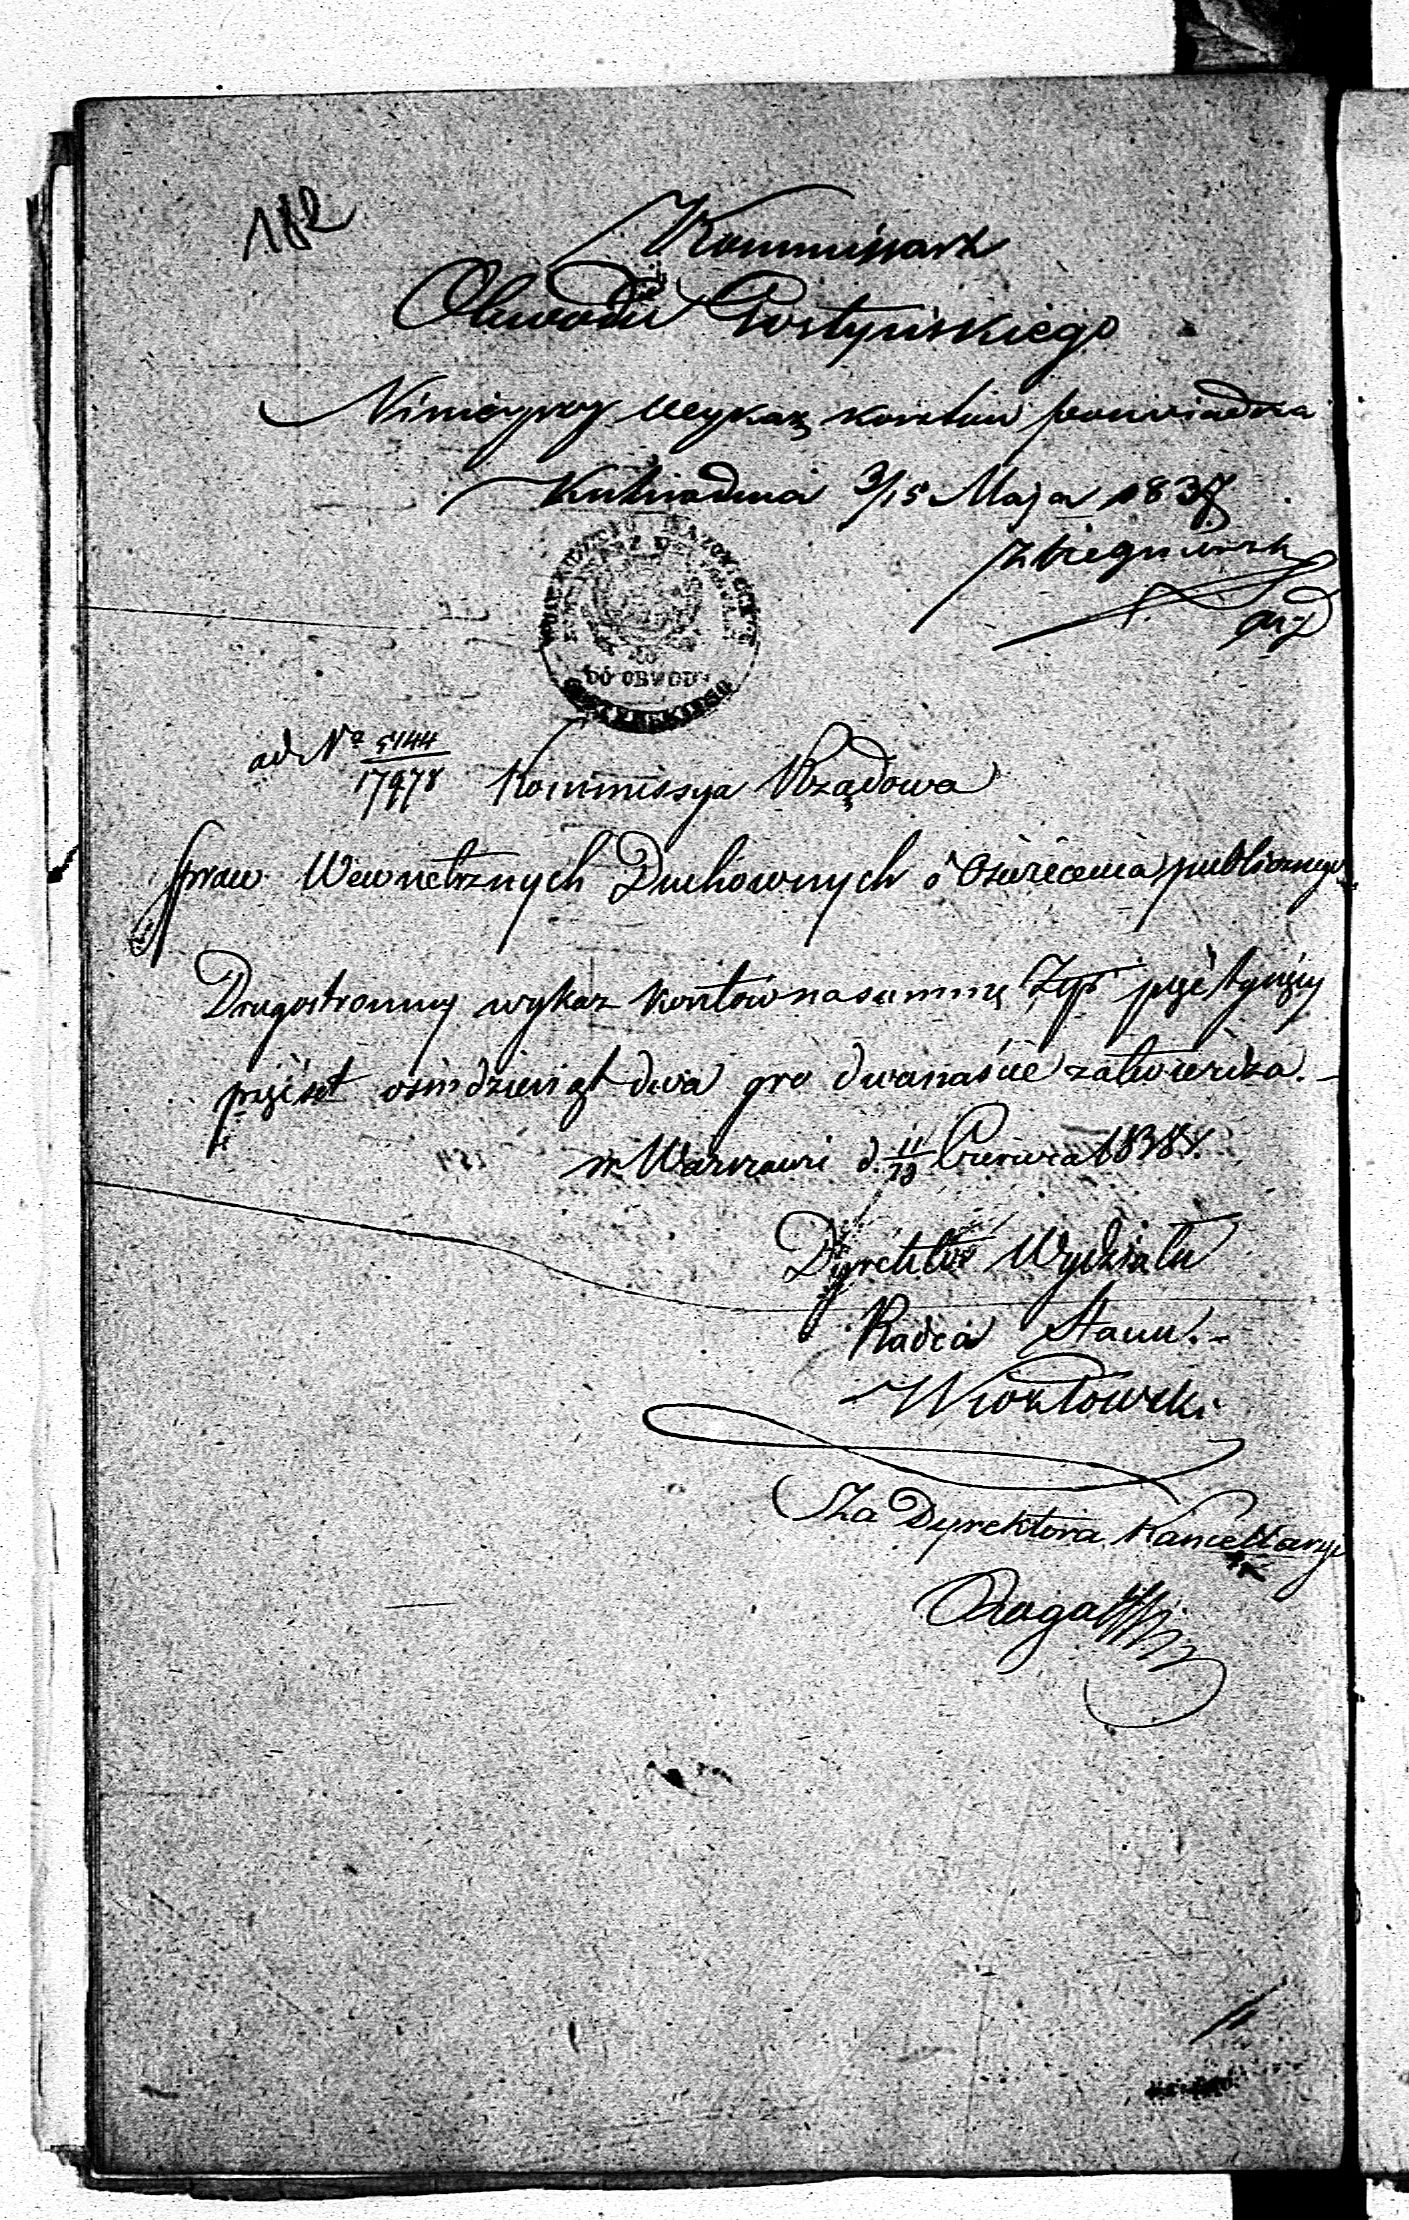 182
Kommissarz
Obwodu Gostyńskiego
Ninieyszy Wykaz kosztów poświadcza
Kutno dnia 3/15 Maja 1837
WOJEWÓDZTWO MAZOWIECKIE
DO OBWODU
GOSTYŃSKIEGO
ad No 5144/17978 Kommissya Rządowa
Spraw Wewnętrznych Duchownych i Oświecenia publicznego
Drugostronny wykaz kosztów na summę Złp pięć tysięcy
pięćset ośmdziesiąt dwa gro dwanaście zatwierdza. -
w Warszawie d. 11/19 Czerwca 1838 r.
Dyrektor Wydziału
Radca Stanu. -
Za Dyrektora Kancellaryi